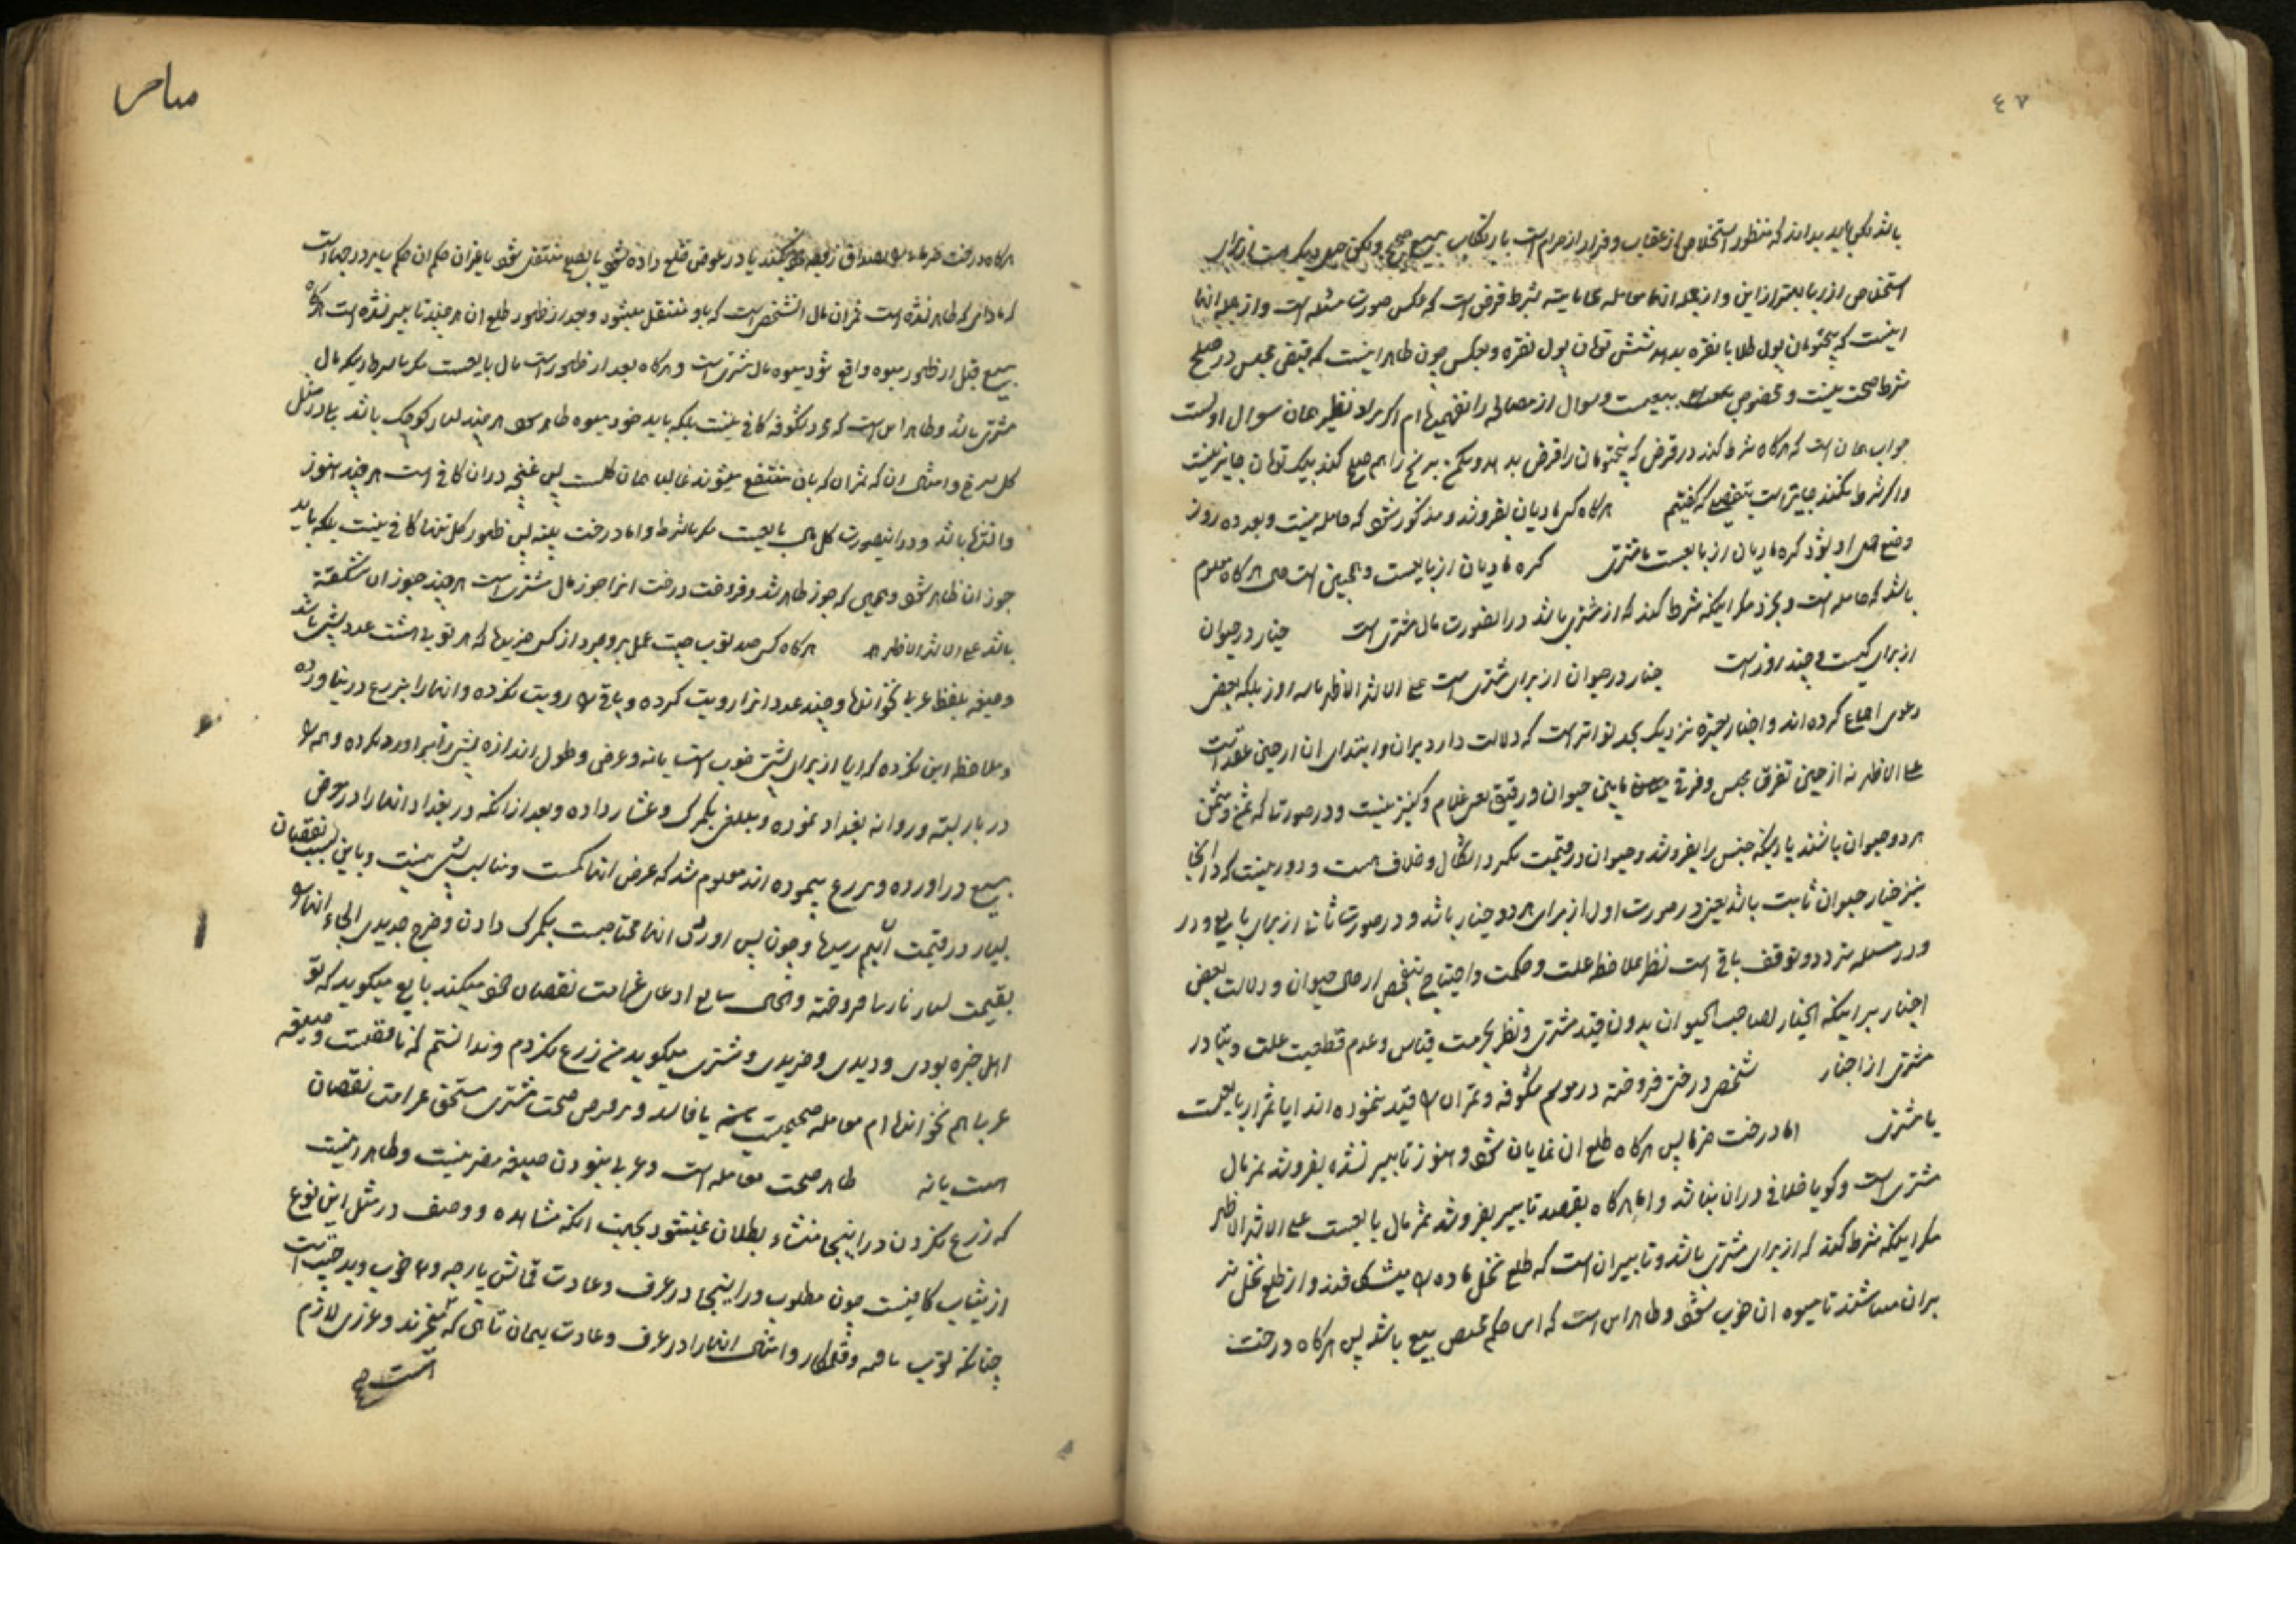 ٤٧
باشد لکن باید بداند که منظور استخلاص از عقاب و فرار از حرام است بارتکاب بیع صحیح و لکن حیل دیگر هست از برای
استخلاص از ربا بهتر از این و از جمله انها معامله محاباتیه بشرط قرض است که عکس صورت مسئله است و از جمله انها
اینست که پنجتومان پول طلا یا نقره بدهد بشش تومان پول نقره و بعکس چون ظاهر اینست که قبض مجلس در صلح
شرط صحت نیست و مخصوص ببیعست و سوال از مصالحه را نفهمیده‌ام اکر مراد نظیر همان سوال اولست
جواب همان است که هرکاه شرط کند در قرض که پنجتومان را قرض بدهد و یکمن برنج را هم صلح کند بیک تومان جایز نیست
و اکر شرط نکنند جایز است بتفصیلی که کفتیم هرکاه کسی مادیان بفروشد و مذکور شود که حامله نیست و بعد ده روز
وضع حمل او بشود کره مادیان از بایعست یا مشتری کره مادیان از بایعست و همچنین است هرکاه معلوم
باشد که حامله است و بخرد مکر اینکه شرط کند که از مشتری باشد در اینصورت مال مشتری است خیار در حیوان
از برای کیست و چند روز است خیار در حیوان از برای مشتری است علی الاشهر الاظهر تا سه روز بلکه بعضی
دعوی اجماع کرده‌اند و اخبار معتبره نزدیک بحد تواتر است که دلالت دارد بران و ابتدای ان از حین عقد است
علی الاظهر نه از حین تفرق مجلس و فرقی مابین حیوان و رقیق یعنی غلام و کنیز نیست و در صورتی که ثمن و مثمن
هر دو حیوان باشند یا اینکه جنس را بفروشد و حیوان در قیمت بکیرد اشکال و خلاف هست و دور نیست که در انجا
نیز خیار حیوان ثابت باشد یعنی در صورت اول از برای هر دو خیار باشد و در صورت ثانی از برای بایع و در
و در مسئله تردد و توقف باقی است نظر بملاحظه علت و حکمت و احتیاج بتفحص از حال حیوان و دلالت بعض
اخبار بر اینکه الخیار لصاحب الحیوان بدون قید مشتری و نظر بحرمت قیاس و عدم قطعیت علت و تبادر
مشتری از اخبار شخصی درختی فروخته در موسم شکوفه و ثمر ان را قید ننموده‌اند ایا ثمر از بایعست
یا مشتری اما درخت خرما پس هرکاه طلع ان نمایان شود و هنوز تابیر نشده بفروشد ثمر مال
مشتری است و کویا خلافی دران نباشد و اما هرکاه بقصد تابیر بفروشد ثمر مال بایعست علی الاشهر الاظهر
مکر اینکه شرط کند که از برای مشتری باشد و تابیر ان است که طلع نخل ماده را میشکافند و از طلع نخل نر
بران میپاشند تا میوه ان خوب شود و ظاهر اینست که این حکم مختص بیع باشد پس هرکاه درخت
هرکاه درخت خرما را بصداق زنی کنند یا در عوض خلع داده شود یا بصلح منتقل شود یا بغیران حکم ان حکم سایر درختهاست
که مادامی که ظاهر نشده است ثمر ان مال انشخص است که باو منتقل میشود و بعد از ظهور طلع ان هرچند تابیر نشده است هرکاه
بیع قبل از ظهور میوه واقع شود میوه مال مشتری است و هرکاه بعد از ظهور است مال بایعست مکر با شرط اینکه مال
مشتری باشد و ظاهر این است که مجرد شکوفه کافی نیست بلکه باید خود میوه ظاهر شود هرچند بسیار کوچک باشد بلی در مثل
کل سرخ و امثال ان که ثمر ان که بان منتفع میشوند غالبا همان کلست پس غنچه دران کافی است هرچند هنوز
وا نشده باشد و در اینصورت کل مال بایعست مکر بالشرط و اما درخت پنبه پس ظهور کل تنها کافی نیست بلکه باید
جوز ان ظاهر شود و همین که جوز ظاهر شد و فروخت درخت انرا جوز مال مشتری است هرچند جوز ان شکفته
باشد علی الاشهر الاظهر هرکاه کسی صد توپ چیت عمل بروجرد از کسی خریده که هر توپی هشت عدد پشتی باشد
و صیغه بلفظ عربی نخوانده و چند عدد انرا رویت کرده و باقی را رویت نکرده و انها را بذرع در نیاورده
و ملاحظه این نکرده که ایا از برای پشتی خوب است یا نه و عرض و طول اندازه پشتی برآورد نکرده و همه را
در بار بسته و روانه بغداد نموده و مبلغی بکمرک و عشار داده و بعد از انکه در بغداد انها را در معرض
بیع در اورده و بذرع پیموده‌اند معلوم شد که عرض انها کمست و مناسب پشتی نیست و باین سبب نقصان
بسیار در قیمت انهم رسیده و چون پس اوردن انها محتاجست بکمرک دادن و خرج جدیدی لاجل انها را
بقیمت بسیار نارسا فروخته و الحال ببایع ادعای غرامت نقصان خود میکند بایع میکوید که تو
اهل خبره بودی و دیدی و خریدی و مشتری میکوید من ذرع نکردم و ندانستم که ناقصست و صیغه
عربی هم نخوانده‌ام معامله صحیحست یا فاسد و بر فرض صحت مشتری مستحق غرامت نقصان
هست یا نه ظاهر صحت معامله است و عربی نبودن صیغه مضر نیست و ظاهر اینست
که ذرع نکردن در اینجا منشاء بطلان نمیشود بجهت انکه مشاهده و وصف در مثل این نوع
از ثیاب کافیست چون مطلوب در اینجا در عرف و عادت قماش پارچه و خوب و بد چیت است
چنانکه توپ بافته و قلمکار و امثال انها را در عرف و عادت بهمان تائی که میخرند و عرزی لازم
است